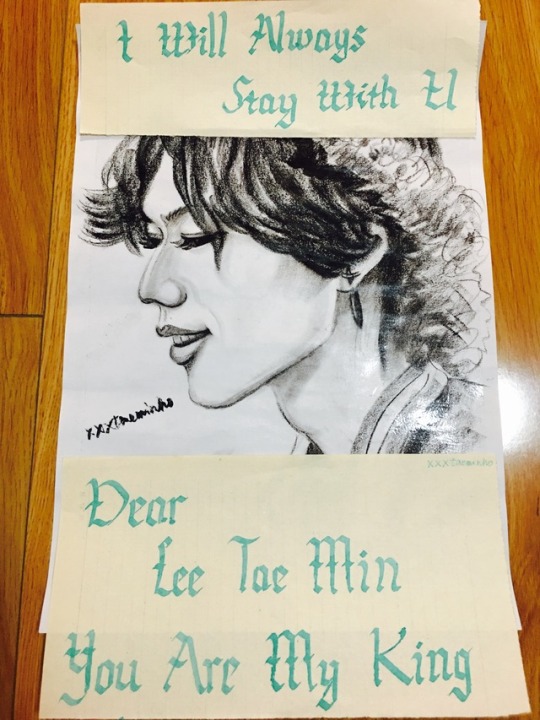 I Will Always
Stay With U
xxxtaeminho
xxxtaeminho
Dear
Lee Tae Min
You Are My King